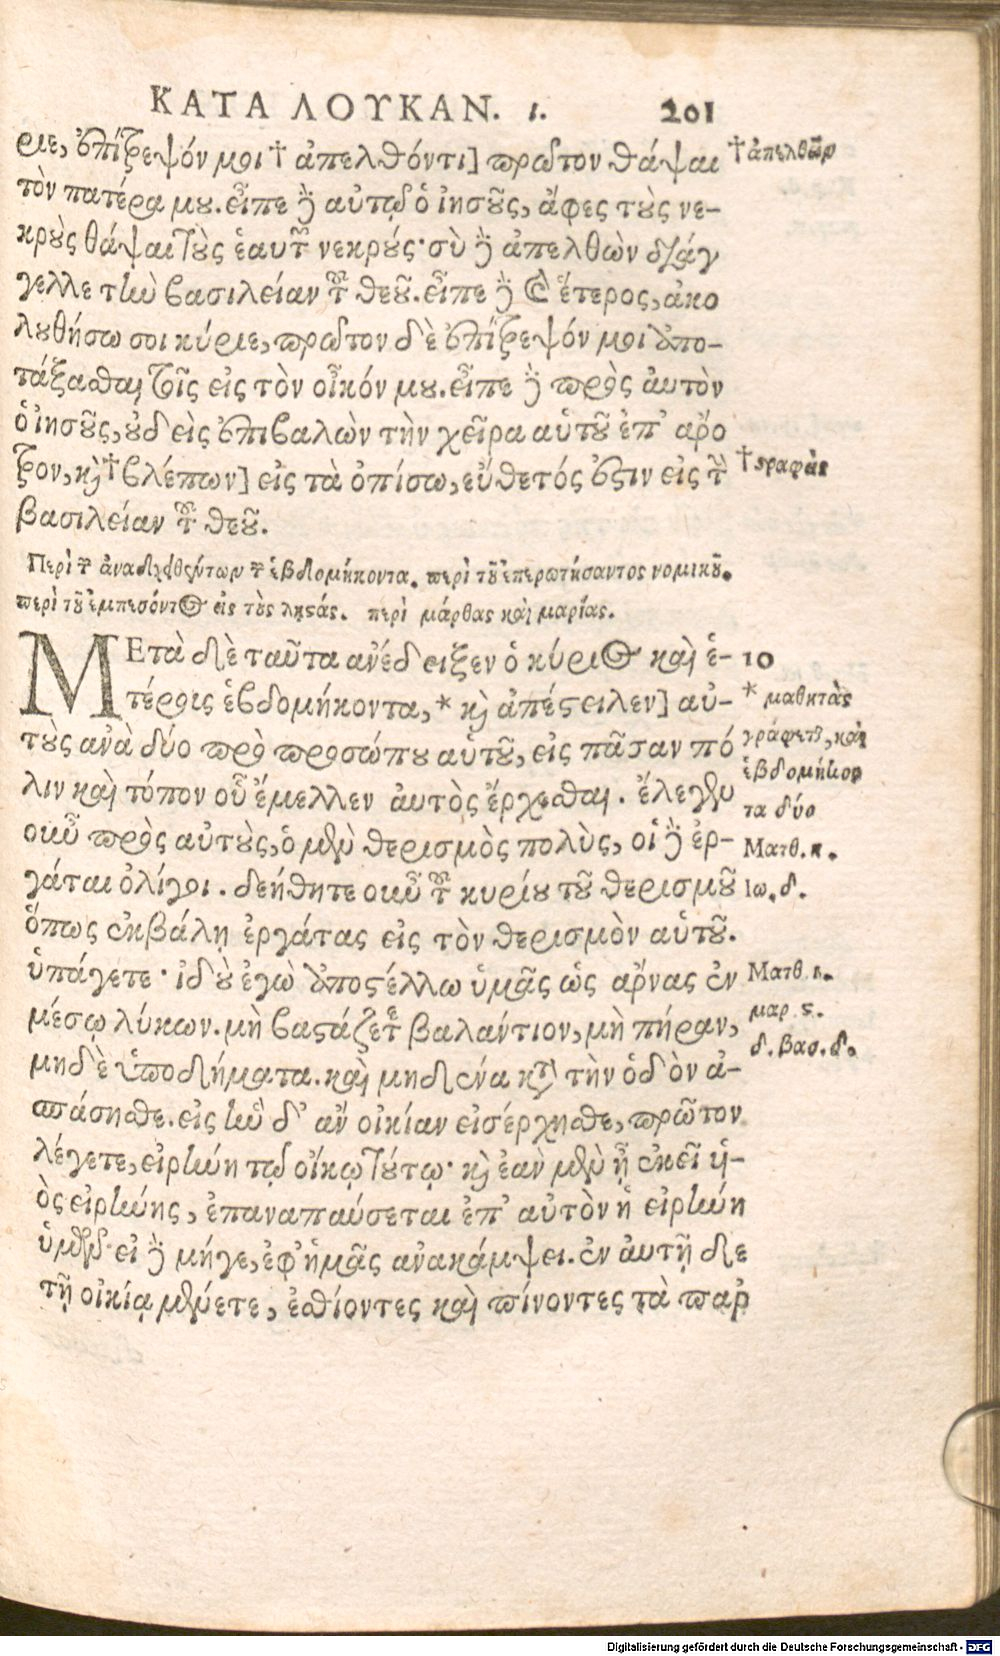 ΚΑΤΑ ΛΟΥΚΑΝ. ι. 201
ριε, ἐπίτρεψόν μοι † ἀπελθόντι] πρῶτον θάψαι
† ἀπελθεῖν
τὸν πατέρα μου. εἶπε δὲ αὐτῷ ὁ ἰησοῦς, ἄφες τοὺς νε-
κροὺς θάψαι τοὺς ἑαυτῶν νεκρούς· σὺ δὲ ἀπελθὼν διάγ
γελλε τὴν βασιλείαν τοῦ θεοῦ. εἶπε δὲ καὶ ἕτερος, ἀκο
λουθήσω σοι κύριε, πρῶτον δὲ ἐπίτρεψόν μοι ἀπο-
τάξασθαι τοῖς εἰς τὸν οἶκόν μου. εἶπε δὲ πρὸς αὐτὸν
ὁ ἰησοῦς, οὐδεὶς ἐπιβαλὼν τὴν χεῖρα αὑτοῦ ἐπ' αρο
τρον, καὶ † βλέπων] εἰς τὰ ὀπίσω, εὔθετός ἐστιν εἰς τὴν
† στραφεὶς
βασιλείαν τοῦ θεοῦ.
Περὶ τῶν ἀναδειχθέντων τῶν ἑβδομήκοντα. περὶ τοῦ ἐπερωτήσαντος νομικοῦ.
περὶ τοῦ ἐμπεσόντος εἰς τοὺς λῃστάς. περὶ μάρθας καὶ μαρίας.
ΜΕτὰ δὲ ταῦτα ἀνέδειξεν ὁ κύριος καὶ ἑ-
10
τέροις ἑβδομήκοντα, * καὶ ἀπέστειλεν] αὐ-
* μαθητὰς
τοὺς ἀνὰ δύο πρὸ προσώπου αὑτοῦ, εἰς πᾶσαν πό
γράφεται, καὶ
λιν καὶ τόπον οὗ ἔμελλεν αὐτὸς ἔρχεσθαι. ἔλεγεν
ἑβδομήκον
τα δύο
οὖν πρὸς αὐτοὺς, ὁ μὲν θερισμὸς πολὺς, οἱ δὲ ἐρ-
Ματθ. κ.
γάται ὀλίγοι. δεήθητε οὖν τοῦ κυρίου τοῦ θερισμοῦ
Ιω. δ.
ὅπως ἐκβάλῃ ἐργάτας εἰς τὸν θερισμὸν αὑτοῦ.
ὑπάγετε· ἰδοὺ ἐγὼ ἀποστέλλω ὑμᾶς ὡς ἄρνας ἐν
Ματθ. ι.
μέσῳ λύκων. μὴ βαστάζετε βαλάντιον, μὴ πήραν,
μαρ. ς.
δ. βασ. δ.
μηδὲ ὑποδήματα. καὶ μηδένα κατὰ τὴν ὁδὸν ἀ-
σπάσησθε. εἰς ἣν δ' ἂν οἰκίαν εἰσέρχησθε, πρῶτον
λέγετε, εἰρήνη τῷ οἴκῳ τούτῳ· καὶ ἐὰν μὲν ᾖ ἐκεῖ υἱ-
ὸς εἰρήνης, ἐπαναπαύσεται ἐπ' αὐτὸν ἡ εἰρήνη
ὑμῶν· εἰ δὲ μήγε, ἐφ' ἡμᾶς ἀνακάμψει. ἐν αὐτῇ δὲ
τῇ οἰκίᾳ μένετε, ἐσθίοντες καὶ πίνοντες τὰ παρ
Digitalisierung gefördert durch die Deutsche Forschungsgemeinschaft - DFG